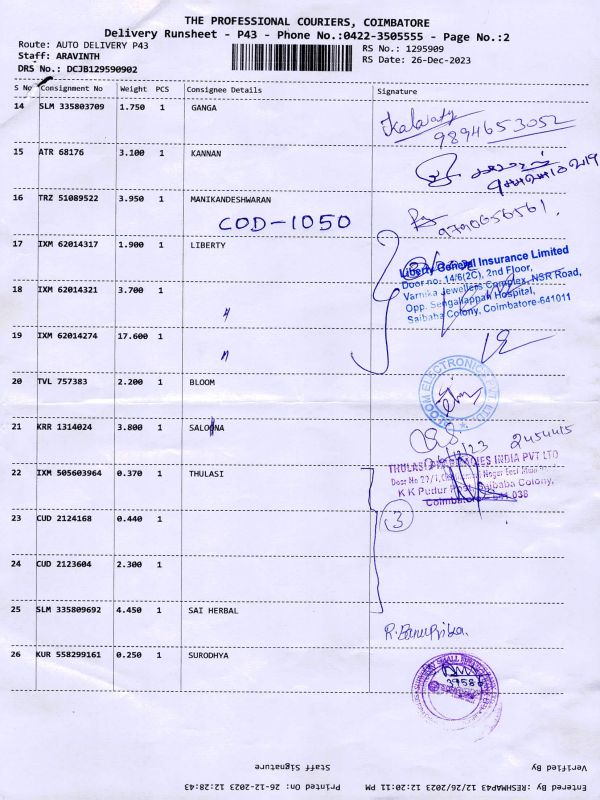 THE PROFESSIONAL COURIERS, COIMBATORE
Delivery Runsheet - P43 - Phone No.:0422-3505555 - Page No.:2
Route: AUTO DELIVERY P43 RS No.: 1295909
Staff: ARAVINTH RS Date: 26-Dec-2023
DRS No.: DCJB129590902
S No Consignment No Weight PCS Consignee Details Signature
14 SLM 335803709 1.750 1 GANGA
9894653052
15 ATR 68176 3.100 1 KANNAN
16 TRZ 51089522 3.950 1 MANIKANDESHWARAN
COD-1050
9790656561
17 IXM 62014317 1.900 1 LIBERTY
Liberty General Insurance Limited
Door no. 14/6(2C), 2nd Floor,
Varnika Jewellers Complex, NSR Road,
Opp. Sengaliappan Hospital,
Saibaba Colony, Coimbatore-641011
18 IXM 62014321 3.700 1
〃
19 IXM 62014274 17.600 1
〃
20 TVL 757383 2.200 1 BLOOM
21 KRR 1314024 3.800 1 SALOONA
2454415
22 IXM 505603964 0.370 1 THULASI
THULASI INDIA PVT LTD
K K Pudur Saibaba Colony,
Coimbatore 038
23 CUD 2124168 0.440 1
3
24 CUD 2123604 2.300 1
25 SLM 335809692 4.450 1 SAI HERBAL
R. Banupriya.
26 KUR 558299161 0.250 1 SURODHYA
Verified By
Staff Signature
Entered By :RESHMAP43 12/26/2023 12:20:11 PM Printed On: 26-12-2023 12:28:43